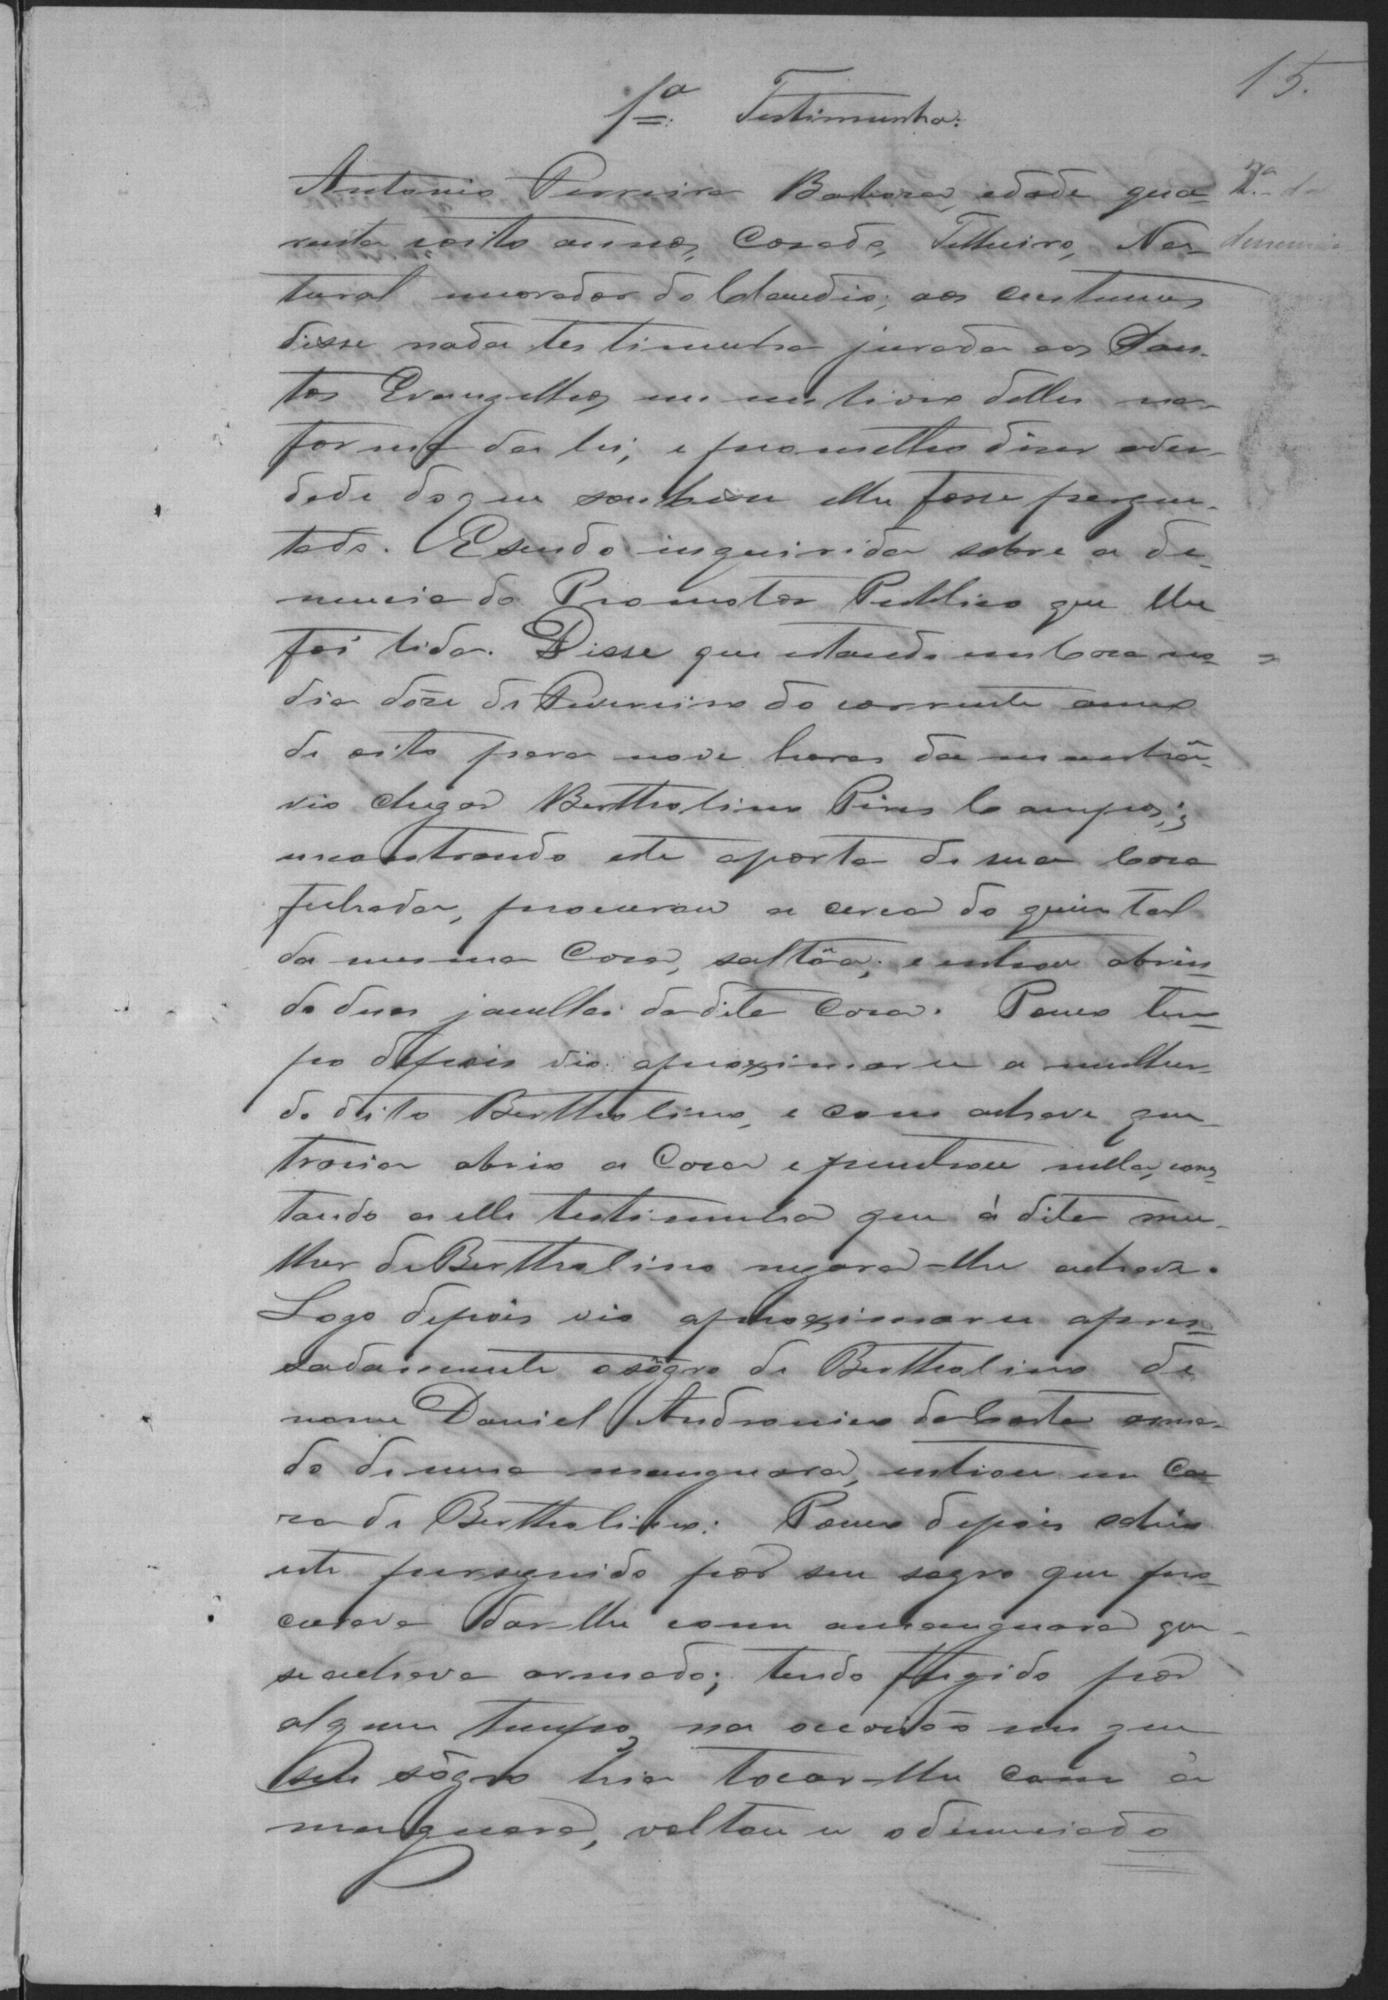 15.
1ª Testimunha:
Antonio Ferreira Barbosa, edade qua-
renta e oito annos, Casado, Telheiro, Na-
tural morador do Claudio; aos custumes
disse nada testimunha jurada aos San-
tos Evangelhos em um livro delles na
forma da lei, e prometteo diser a ver-
dade do que soubesse e lhe fosse pergun-
tado. E sendo inquirida sobre a de-
nuncia do Promotor Publico que lhe
foi lida. Disse que estando em Casa no
dia dóze de Fevereiro do corrente anno
de oito para nove horas da manhã
vio chegar Bertholino Pires Campos;
encontrando este a porta de sua Casa
fechada, procurou a cerca do quintal
da mesma Casa, saltôa, e entrou abrin-
do duas janellas da dita Casa. Pouco tem-
po depois vio aproximar se a mulher
do dito Bertholino, e com a chave que
trasia abrio a Casa e penetrou nella, cons-
tando a elle testimunha que á dita mu-
lher de Bertholino negara-lhe a chave.
Logo depois vio aproximar se apres-
sadamente o sôgro de Bertholino de
nome Daniel Andronico da Costa arma-
do de uma manguara, entrou em Ca-
sa de Bertholino: Pouco depois sahio
este perseguido por seu sogro que pro-
curava dar-lhe com a manguara que
se achava armado; tendo fugido por
algum tempo, na occasião em que
seu sôgro hia tocar-lhe com a
manguara, voltou se o denunciado
2.ª da
denuncia